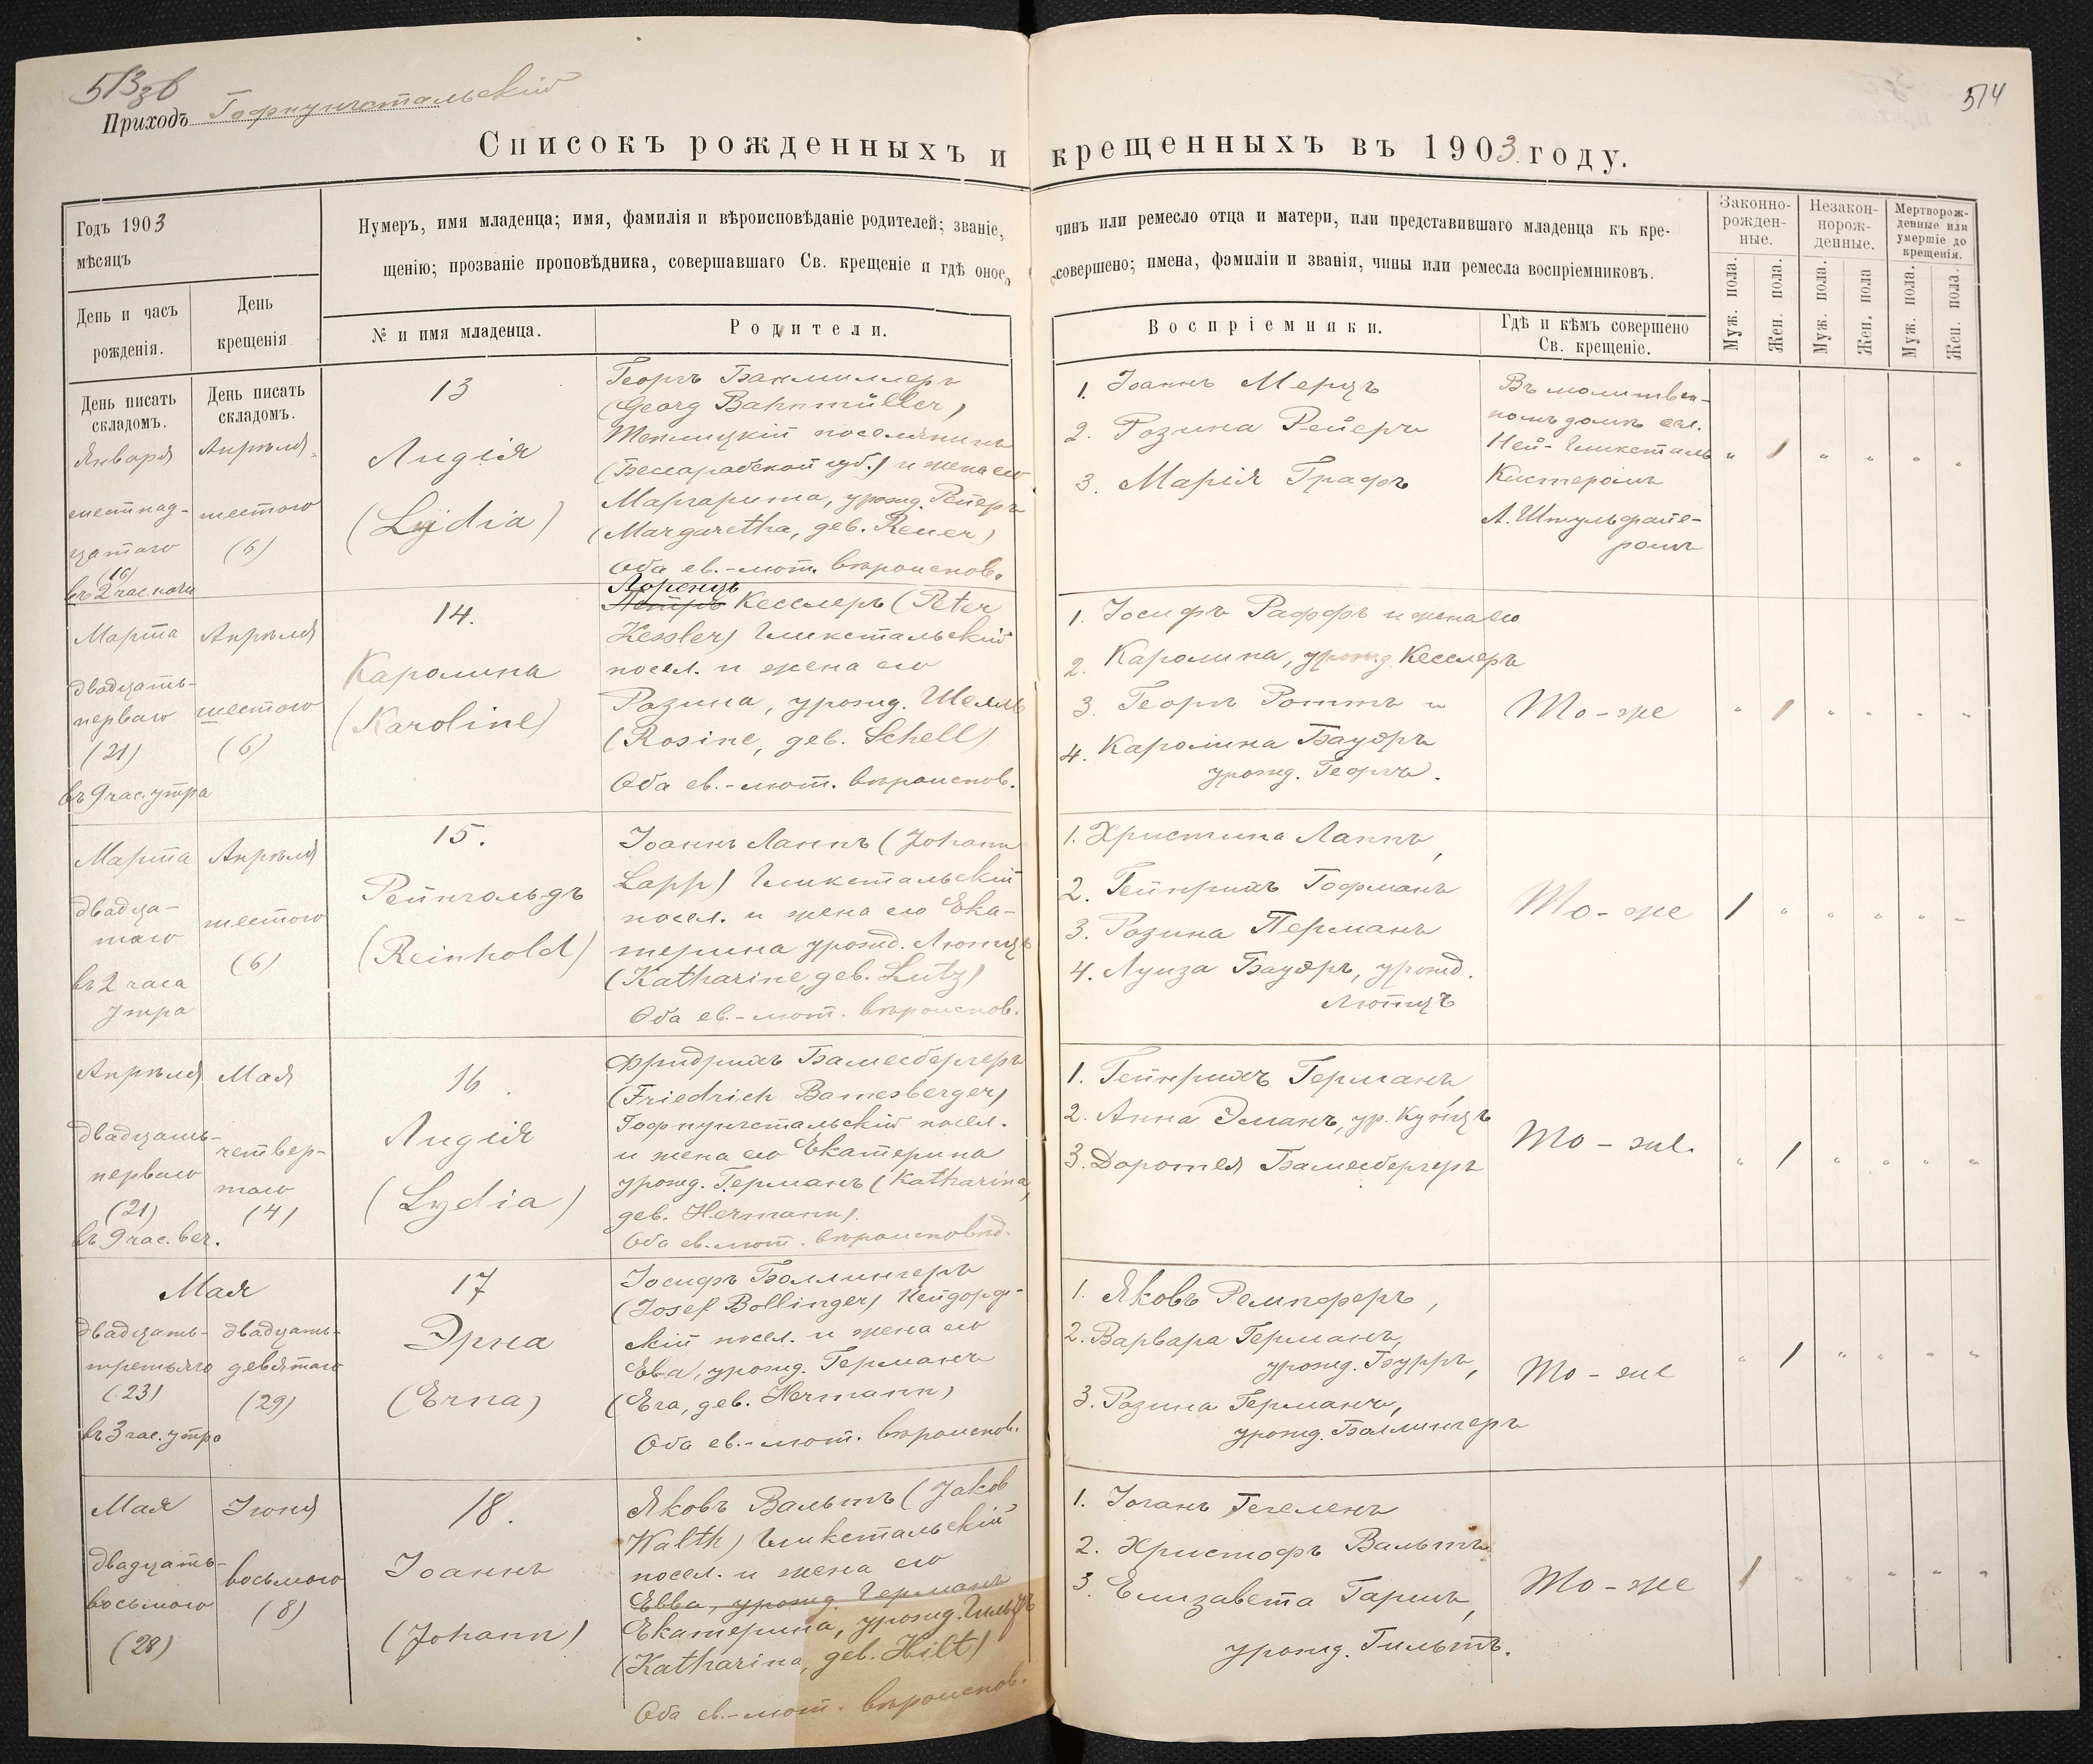 513зв
514
Приходъ Гофнунгстальскій
Списокъ рожденныхъ и крещенныхъ въ 1903 году.
Годъ 1903
мѣсяцъ
День и часъ
рожденія.
День
крещенія
Нумеръ, имя младенца; имя, фамилія и вѣроисповѣданіе родителей; званіе, чинъ или ремесло отца и матери, или представившаго младенца къ кре-
щенію; прозваніе проповѣдника, совершавшаго Св. крещеніе и гдѣ оное совершено; имена, фамиліи и званія, чины или ремесла воспріемниковъ.
№ и имя младенца.
Родители.
Воспріемники.
Гдѣ и кѣмъ совершено
Св. крещеніе.
Законно-
рожден-
ные.
Незакон-
норож-
денные.
Мертворож-
денные или
умершіе до
крещенія.
Муж. пола.
Жен. пола.
Муж. пола.
Жен. пола
Муж. пола.
Жен. пола.
День писать
складомъ.
День писать
складомъ.
Января
шестнад-
цатаго
(16)
въ 2 час. ночи
Апрѣля
шестого
(6)
13
Лидія
(Lydia)
Георгъ Банмиллеръ
(Georg Bahnmüller)
Теплицкій поселянинъ
(Бессарабской губ.) и жена его
Маргарита, урожд. Рейеръ
(Margaretha, geb. Reuer)
Оба ев.-лют. вѣроиспов.
1. Іоаннъ Мерцъ
2. Розина Рейеръ
3. Марія Графъ
Въ молитвен-
номъ домѣ сел.
Ней-Глюксталь
Кистеромъ
А. Штульфауе-
ромъ
" 1 " " " "
Марта
двадцать-
перваго
(21)
въ 9 час. утра
Апрѣля
шестого
(6)
14.
Каролина
(Karoline)
Лоренцъ
Петръ Кесслеръ (Peter
Kessler) Глюкстальскій
посел. и жена его
Розина, урожд. Шелль
(Rosine, geb. Schell)
Оба ев.-лют. вѣроиспов.
1. Іосифъ Раффъ и жена его
2. Каролина, урожд. Кесслеръ
3. Георгъ Роттъ и
4. Каролина Бауэръ
урожд. Георгъ.
То-же
" 1 " " " "
Марта
двадца-
таго
въ 2 часа
утра
Апрѣля
шестого
(6)
15.
Рейнгольдъ
(Reinhold)
Іоаннъ Лаппъ (Johann
Lapp) Глюкстальскій
посел. и жена его Ека-
терина урожд. Лютцъ
(Katharine, geb. Lutz)
Оба ев.-лют. вѣроиспов.
1. Христина Лаппъ,
2. Гейнрихъ Гофманъ
3. Розина Перманъ
4. Луиза Бауэръ, урожд.
Лютцъ
То-же
1 " " " " "
Апрѣля
двадцать-
перваго
(21)
въ 9 час. веч.
Мая
четвер-
таго
(4)
16.
Лидія
(Lydia)
Фридрихъ Бамесбергеръ
(Friedrich Bamesberger)
Гофнунгстальскій посел.
и жена его Екатерина
урожд. Германъ (Katharina,
geb. Hermann).
Оба ев.-лют. вѣроисповѣд.
1. Гейнрихъ Германъ
2. Анна Эманъ, ур. Кунцъ
3. Доротея Бамесбергеръ
То-же.
" 1 " " " "
Мая
двадцать-
третьяго
(23)
въ 3 час. утра
двадцать-
девятаго
(29)
17
Эрна
(Erna)
Іосифъ Боллингеръ
(Josef Bollinger) Нейдорф-
скій посел. и жена его
Ева, урожд. Германъ
(Eva, geb. Hermann)
Оба ев.-лют. вѣроиспов.
1. ЯковъРемпферъ,
2. Варвара Германъ,
урожд. Бурръ,
3. Розина Германъ,
урожд. Боллингеръ
То-же
" 1 " " " "
Мая
двадцать-
восьмого
(28)
Іюня
восьмого
(8)
18.
Іоаннъ
(Johann)
Яковъ Вальтъ (Jakob
Walth) Глюкстальскій
посел. и жена его
Евва, урожд. Германъ
Екатерина, урожд. Гильтъ
(Katharina, geb. Hilt)
Оба ев.-лют. вѣроиспов.
1. Іоганъ Гегеленъ
2. Христофъ Вальтъ
3. Елизавета Гаришъ,
урожд. Гильтъ.
То-же
1 " " " " "